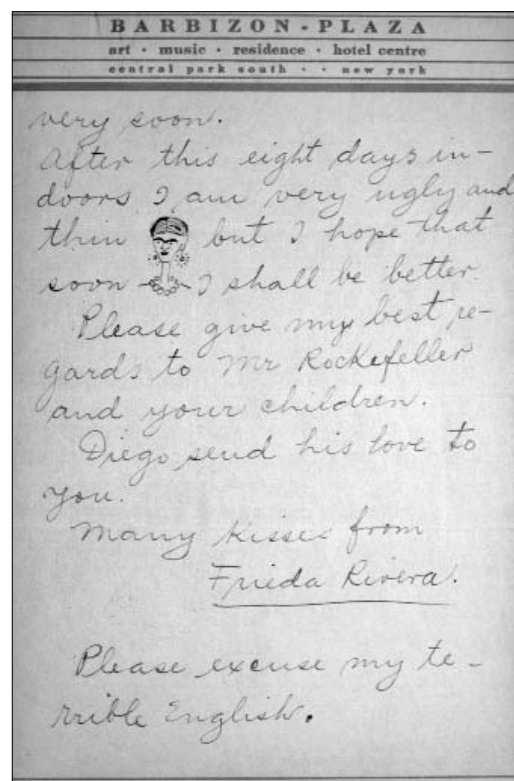 BARBIZON-PLAZA
art · music · residence · hotel centre
central park south · · new york
very soon.
After this eight days in-
doors, I am very ugly and
thin but I hope that
soon I shall be better.
Please give my best re-
gards to Mr Rockefeller
and your children.
Diego send his love to
you.
Many kisses from
Frieda Rivera.
Please excuse my te-
rrible English.